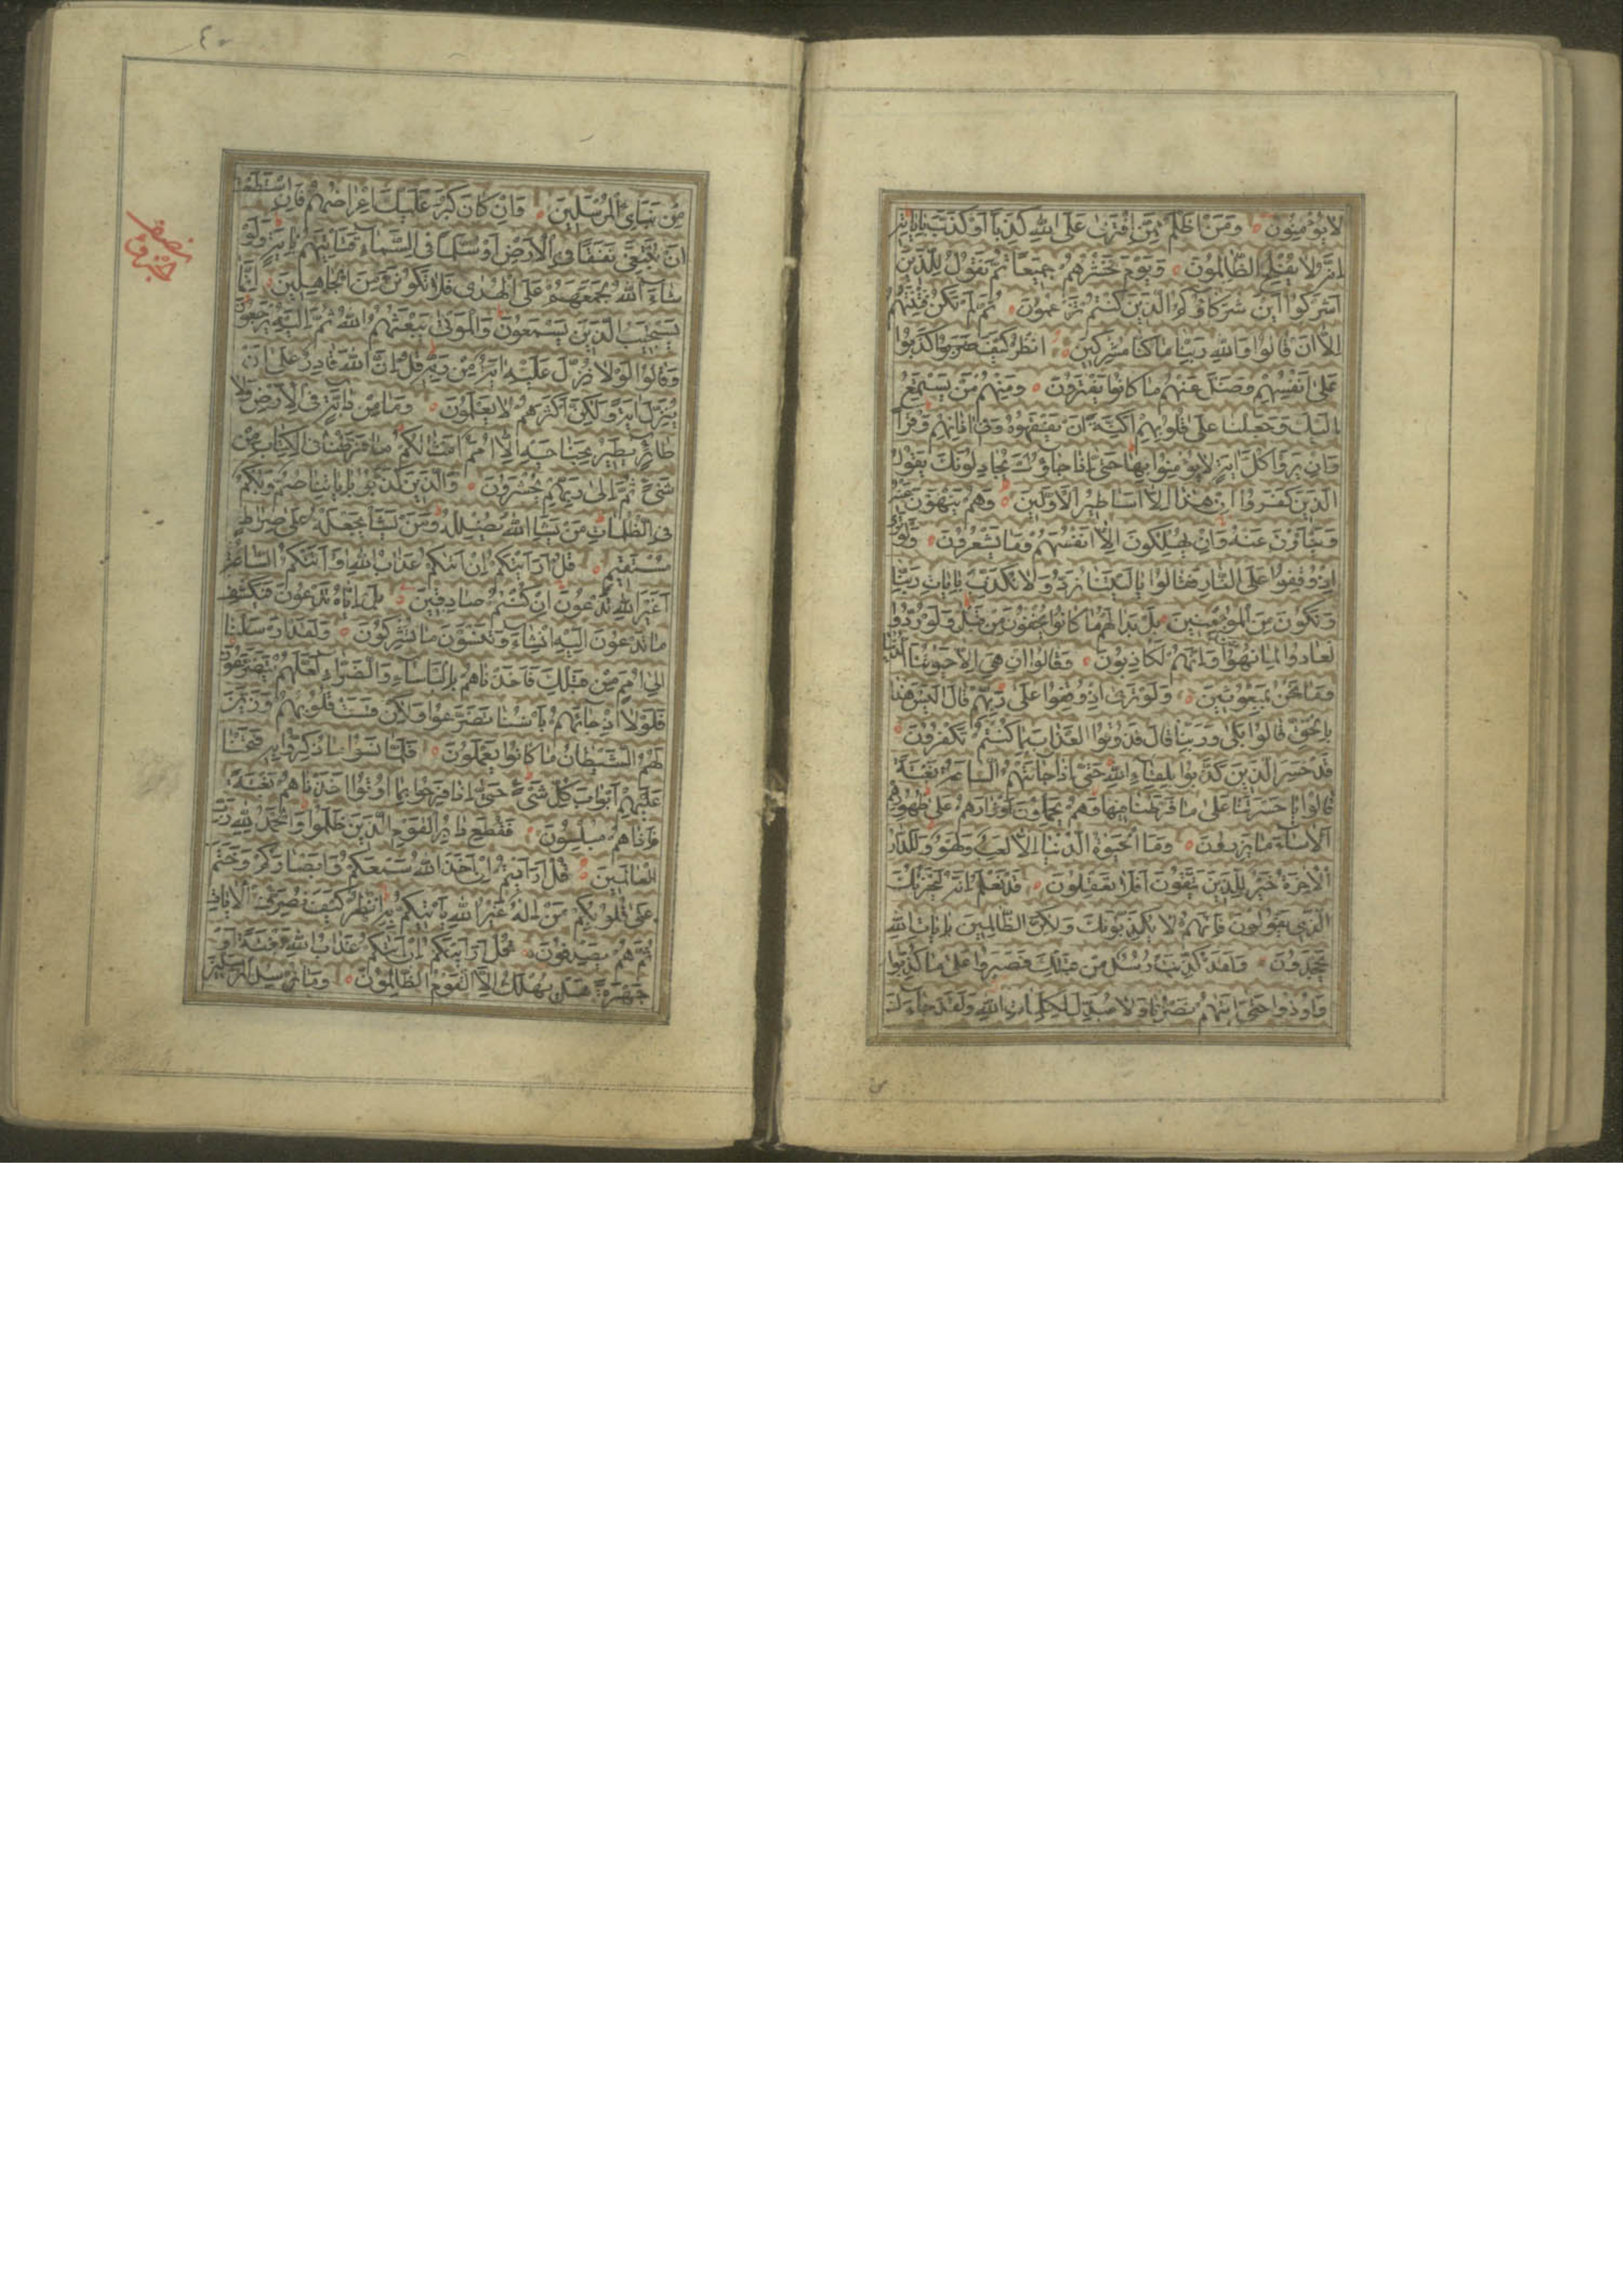 لا يؤمنون ومن اظلم ممن افترى على الله كذبا او كذب باياته
انه لا يفلح الظالمون ويوم نحشرهم جميعا ثم نقول للذين
اشركوا اين شركاؤكم الذين كنتم تزعمون ثم لم تكن فتنتهم
الا ان قالوا والله ربنا ما كنا مشركين انظر كيف كذبوا
على انفسهم وضل عنهم ما كانوا يفترون ومنهم من يستمع
اليك وجعلنا على قلوبهم اكنة ان يفقهوه وفى اذانهم وقرا
وان يروا كل اية لا يؤمنوا بها حتى اذا جاؤك يجادلونك يقول
الذين كفروا ان هذا الا اساطير الاولين وهم ينهون عنه
وينأون عنه وان يهلكون الا انفسهم وما يشعرون ولو ترى
اذ وقفوا على النار فقالوا يا ليتنا نرد ولا نكذب بايات ربنا
ونكون من المؤمنين بل بدا لهم ما كانوا يخفون من قبل ولو ردوا
لعادوا لما نهوا عنه وانهم لكاذبون وقالوا ان هى الا حيوتنا الدنيا
وما نحن بمبعوثين ولو ترى اذ وقفوا على ربهم قال اليس هذا
بالحق قالوا بلى وربنا قال فذوقوا العذاب بما كنتم تكفرون
قد خسر الذين كذبوا بلقاء الله حتى اذا جائتهم الساعة بغتة
قالوا يا حسرتنا على ما فرطنا فيها وهم يحملون اوزارهم على ظهورهم
الا ساء ما يزرون وما الحيوة الدنيا الا لعب ولهو وللدار
الاخرة خير للذين يتقون افلا تعقلون قد نعلم انه ليحزنك
الذى يقولون فانهم لا يكذبونك ولكن الظالمين بايات الله
يجحدون ولقد كذبت رسل من قبلك فصبروا على ما كذبوا
واوذوا حتى اتيهم نصرنا ولا مبدل لكلمات الله ولقد جاءك
٤٠
من نباى المرسلين وان كان كبر عليك اعراضهم فان استطعت
ان تبتغى نفقا فى الارض او سلما فى السماء فتاتيهم باية ولو
شاء الله لجمعهم على الهدى فلا تكونن من الجاهلين انما
يستجيب الذين يسمعون والموتى يبعثهم الله ثم اليه يرجعون
وقالوا لولا نزل عليه اية من ربه قل ان الله قادر على ان
ينزل اية ولكن اكثرهم لا يعلمون وما من دابة فى الارض ولا
طائر يطير بجناحيه الا امم امثالكم ما فرطنا فى الكتاب من
شىء ثم الى ربهم يحشرون والذين كذبوا باياتنا صم وبكم
فى الظلمات من يشا الله يضلله ومن يشا يجعله على صراط
مستقيم قل ارايتكم ان اتيكم عذاب الله او اتتكم الساعة
اغير الله تدعون ان كنتم صادقين بل اياه تدعون فيكشف
ما تدعون اليه ان شاء وتنسون ما تشركون ولقد ارسلنا
الى امم من قبلك فاخذناهم بالباساء والضراء لعلهم يتضرعون
فلولا اذ جائهم باسنا تضرعوا ولكن قست قلوبهم وزين
لهم الشيطان ما كانوا يعملون فلما نسوا ما ذكروا به فتحنا
عليهم ابواب كل شىء حتى اذا فرحوا بما اوتوا اخذناهم بغتة
فاذا هم مبلسون فقطع دابر القوم الذين ظلموا والحمد لله رب
العالمين قل ارايتم ان اخذ الله سمعكم وابصاركم وختم
على قلوبكم من اله غير الله ياتيكم به انظر كيف نصرف الايات
ثم هم يصدفون قل ارايتكم ان اتيكم عذاب الله بغتة او
جهرة هل يهلك الا القوم الظالمون وما نرسل المرسلين
نصف
جزو